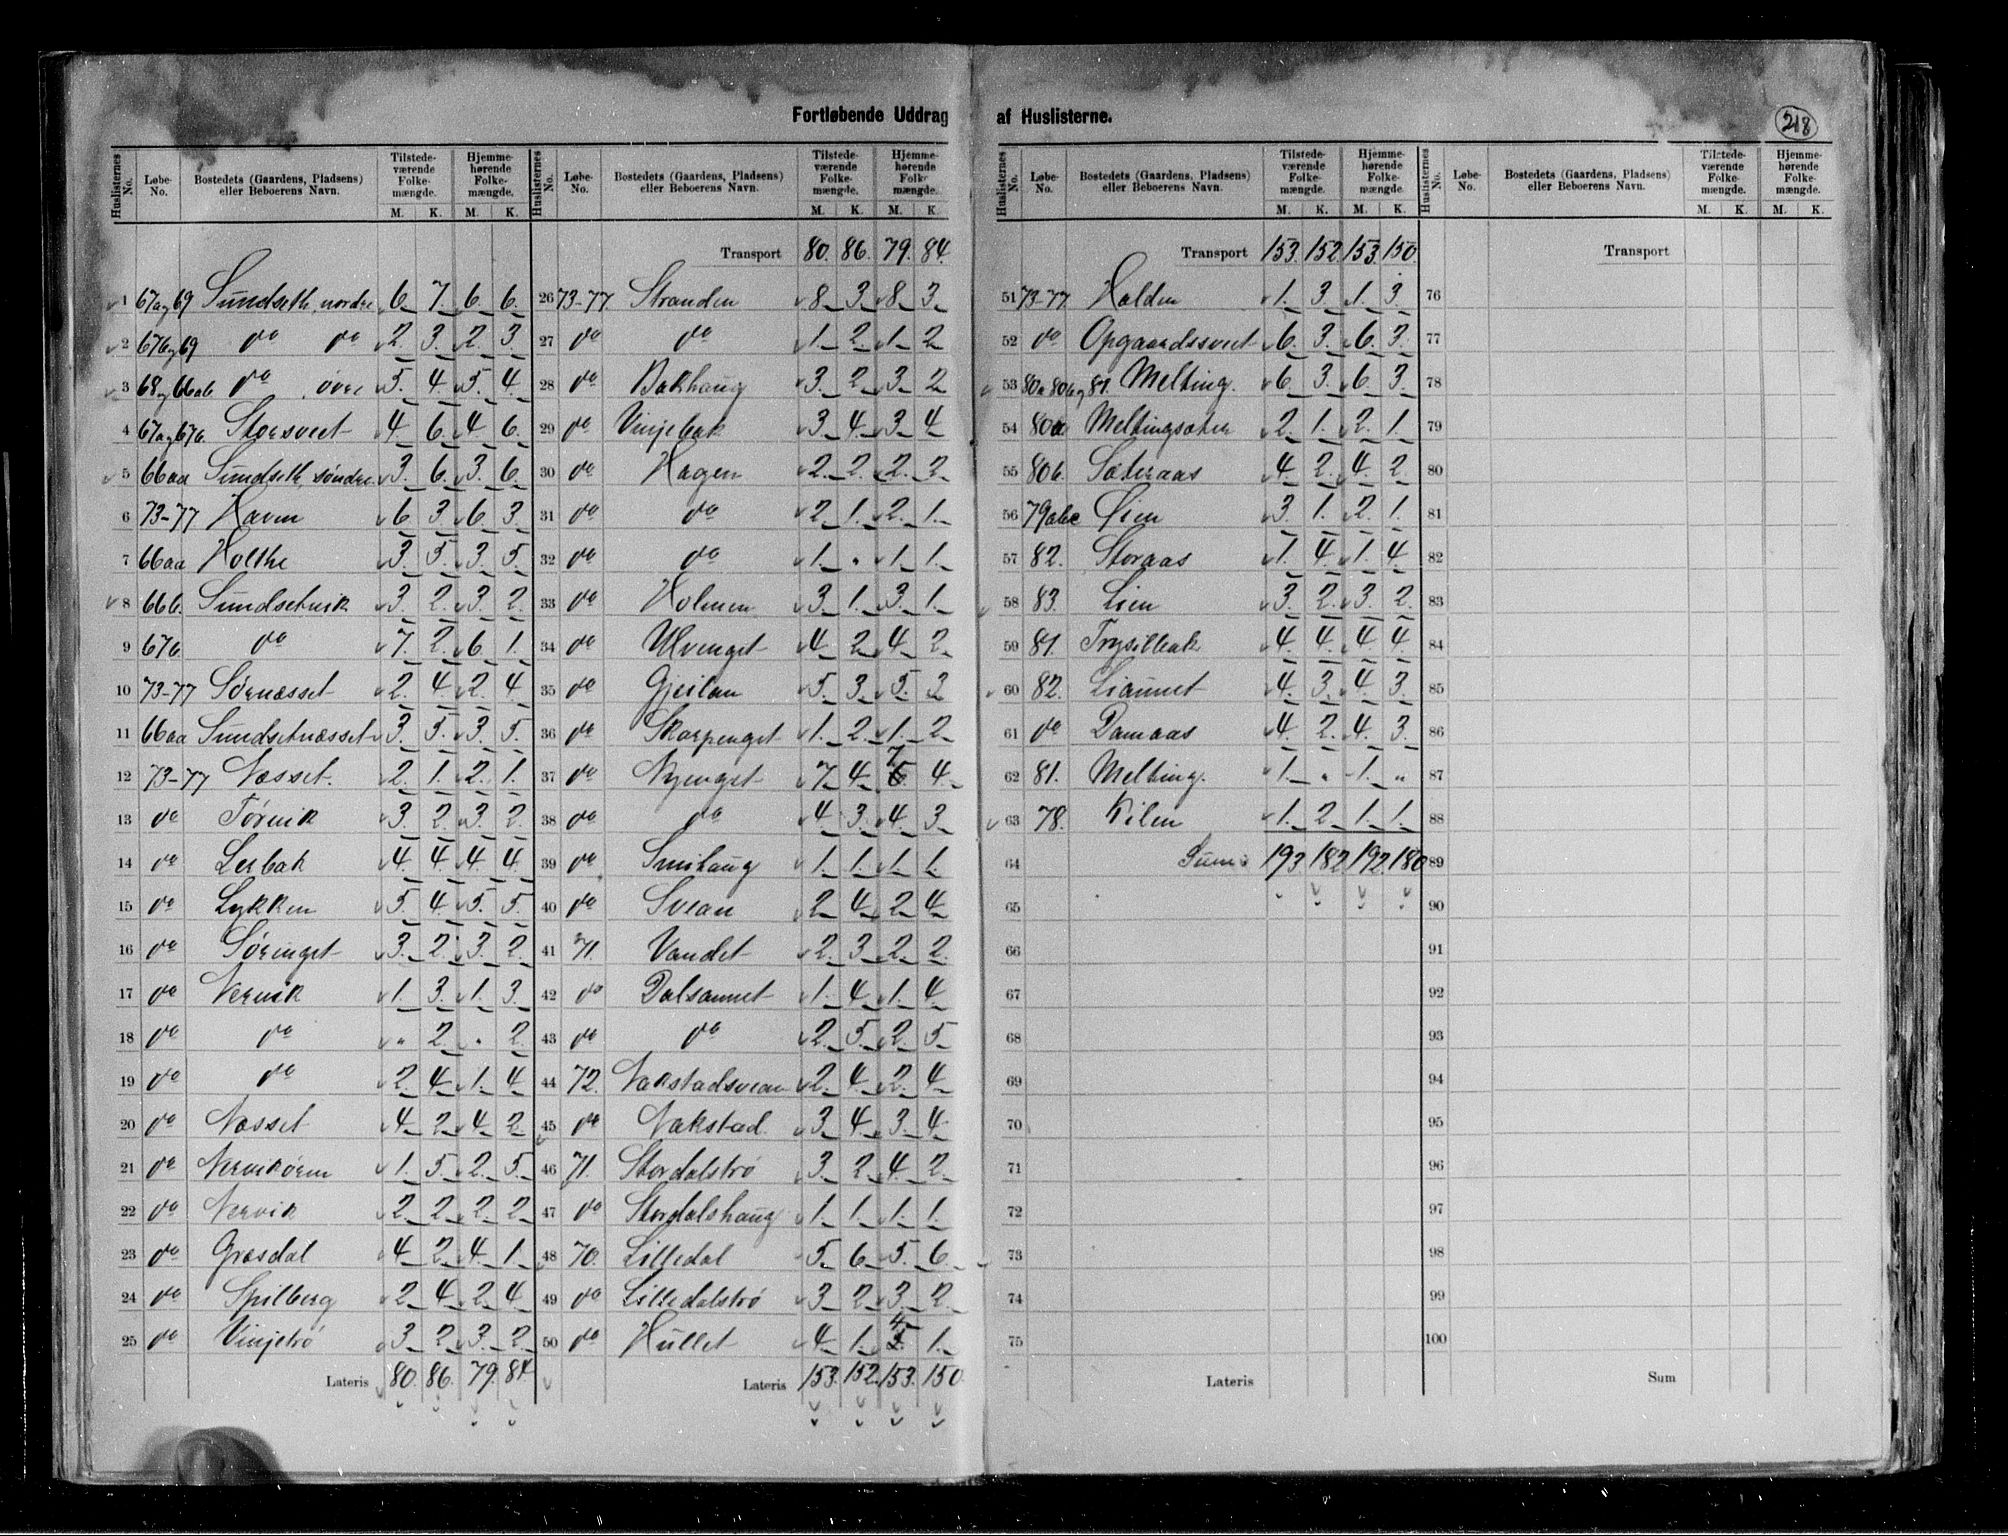 Fortløbende Uddrag af Huslisterne.
218
Huslisternes No. Løbe-No. Bostedets (Gaardens, Pladsens) eller Beboerens Navn. Tilstedeværende Folkemængde. M. K. Hjemmehørende Folkemængde. M. K.
1 67a og 69 Sundseth, nordre 6 7 6 6
2 67b og 69 do do 2 3 2 3
3 68 og 66ab do øvre 5 4 5 4
4 67a og 67b Storsveet 4 6 4 6
5 66aa Sundseth, søndre 3 6 3 6
6 73-77 Haven 6 3 6 3
7 66aa Holthe 3 5 3 5
8 66b Sundsetvik 3 2 3 2
9 67b do 7 2 6 1
10 73-77 Sørnæsset 2 4 2 4
11 66aa Sundsetnæsset 3 5 3 5
12 73-77 Næsset 2 1 2 1
13 do Tørvik 3 2 3 2
14 do Lerbak 4 4 4 4
15 do Lykken 5 4 5 5
16 do Sørenget 3 2 3 2
17 do Nervik 1 3 1 3
18 do do " 2 " 2
19 do do 2 4 1 4
20 do Næsset 4 2 4 2
21 do Nervikøren 1 5 2 5
22 do Nervik 2 2 2 2
23 do Græsdal 4 2 4 1
24 do Spilberg 2 4 2 4
25 do Vinjetrø 3 2 3 2
Lateris 80 86 79 84
Huslisternes No. Løbe-No. Bostedets (Gaardens, Pladsens) eller Beboerens Navn. Tilstedeværende Folkemængde. M. K. Hjemmehørende Folkemængde. M. K.
Transport 80. 86. 79. 84.
26 73-77 Stranden 8 3 8 3
27 do do 1 2 1 2
28 do Bakhaug 3 2 3 2
29 do Vinjebak 3 4 3 4
30 do Hagen 2 2 2 2
31 do do 2 1 2 1
32 do do 1 " 1 1
33 do Holmen 3 1 3 1
34 do Ulvenget 4 2 4 2
35 do Gjeilan 5 3 5 3
36 do Skarpenget 1 2 1 2
37 do Nyenget 7 4 7 4
38 do do 4 3 4 3
39 do Smihaug 1 1 1 1
40 do Svean 2 4 2 4
41 71. Vandet 2 3 2 2
42 do Dalsaunet 1 4 1 4
43 do do 2 5 2 5
44 72. Nakstadsvean 2 4 2 4
45 do Nakstad 3 4 3 4
46 71. Stordalstrø 3 2 4 2
47 do Stordalshaug 1 1 1 1
48 70. Lilledal 5 6 5 6
49 do Lilledalstrø 3 2 3 2
50 do Hullet 4 1 4 1
Lateris 153. 152. 153. 150
Huslisternes No. Løbe-No. Bostedets (Gaardens, Pladsens) eller Beboerens Navn. Tilstedeværende Folkemængde. M. K. Hjemmehørende Folkemængde. M. K.
Transport 153. 152. 153. 150.
51 73-77 Halden 1 3 1 3
52 do Opgaardssveet 6 3 6 3
53 80a 80b og 81. Melting. 6 3 6 3
54 80a Meltingsæter 2 1 2 1
55 80b Sæteraas 4 2 4 2
56 79abc Lien 3 1 2 1
57 82. Storaas 1 4 1 4
58 83. Lien 3 2 3 2
59 81. Trysilbak 4 4 4 4
60 82. Liaunet 4 3 4 3
61 do Damaas 4 2 4 3
62 81. Melting. 1 " 1 "
63 78. Kilen 1 2 1 1
64 Sum 193 182 192 180
65
66
67
68
69
70
71
72
73
74
75
Lateris
Huslisternes No. Løbe-No. Bostedets (Gaardens, Pladsens) eller Beboerens Navn. Tilstedeværende Folkemængde. M. K. Hjemmehørende Folkemængde. M. K.
Transport
76
77
78
79
80
81
82
83
84
85
86
87
88
89
90
91
92
93
94
95
96
97
98
99
100
Sum